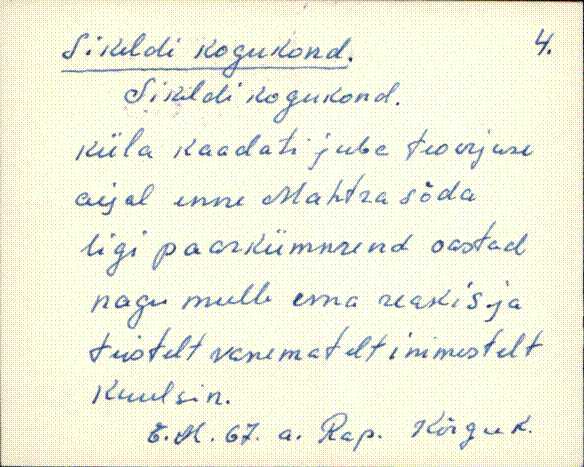 Sikeldi kogukond. 4.
Sikeldi kogukond.
Küla kaadati juba teoorjuse
aejal enne Mahtra sõda
ligi paarkümmend aastad
nagu mulle ema reakis ja
teistelt vanematelt inimestelt
kuulsin.
E.M. 67. a. Rap. Kõrguk.